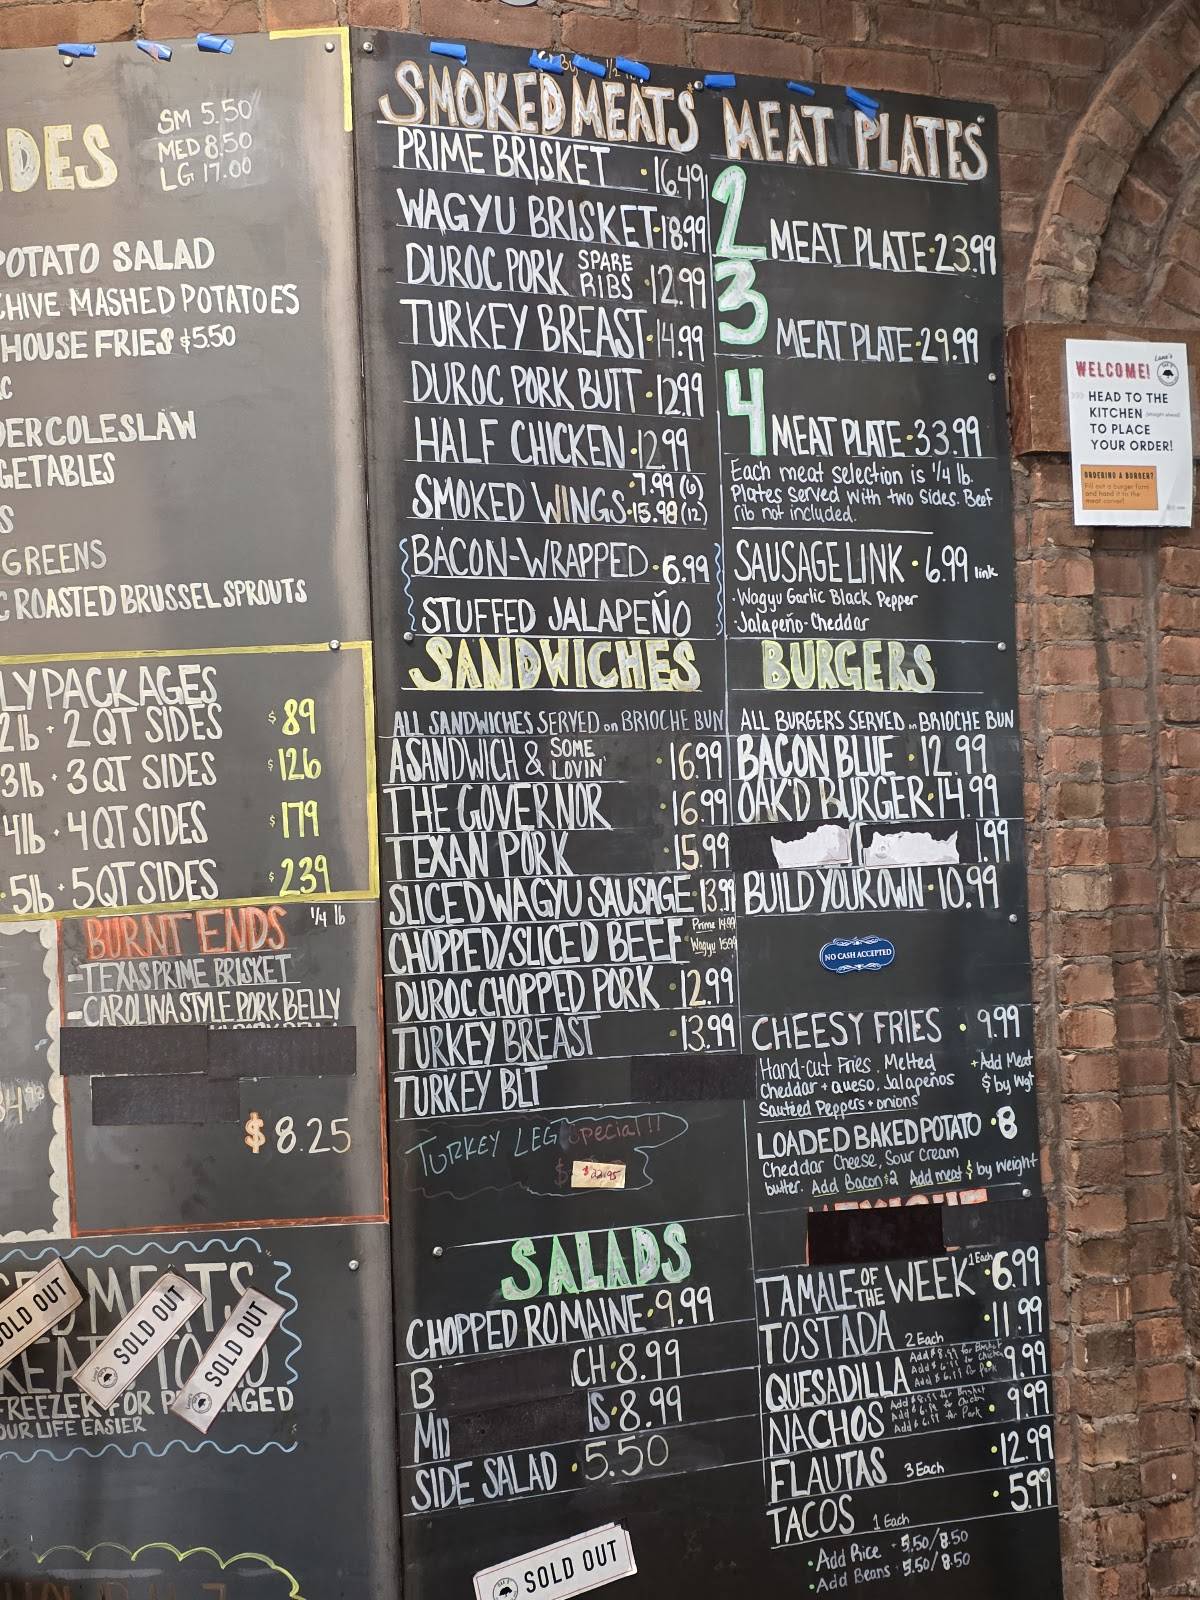 SM 5.50
MED 8.50
LG 17.00
POTATO SALAD
CHIVE MASHED POTATOES
HOUSE FRIES $5.50
COLESLAW
GREENS
ROASTED BRUSSEL SPROUTS
PACKAGES
2lb · 2 QT SIDES $89
3lb · 3 QT SIDES $126
4lb · 4 QT SIDES $179
5lb · 5 QT SIDES $239
BURNT ENDS 1/4 lb
-TEXAS PRIME BRISKET
-CAROLINA STYLE PORK BELLY
$8.25
SOLD OUT
SOLD OUT
SOLD OUT
FREEZER FOR
LIFE EASIER
SMOKED MEATS
PRIME BRISKET · 16.49
WAGYU BRISKET · 18.99
DUROC PORK SPARE RIBS · 12.99
TURKEY BREAST · 14.99
DUROC PORK BUTT · 12.99
HALF CHICKEN · 12.99
SMOKED WINGS · 7.99 (6)
15.98 (12)
BACON-WRAPPED · 6.99
STUFFED JALAPEÑO
SANDWICHES
ALL SANDWICHES SERVED on BRIOCHE BUN
A SANDWICH & SOME LOVIN' · 16.99
THE GOVERNOR · 16.99
TEXAN PORK · 15.99
SLICED WAGYU SAUSAGE 13.99
CHOPPED/SLICED BEEF Prime 14.99
Wagyu 15.99
DUROC CHOPPED PORK · 12.99
TURKEY BREAST · 13.99
TURKEY BLT
TURKEY LEG special!!
$22.95
SALADS
CHOPPED ROMAINE · 9.99
B CH · 8.99
IS · 8.99
SIDE SALAD · 5.50
SOLD OUT
MEAT PLATES
2 MEAT PLATE · 23.99
3 MEAT PLATE · 29.99
4 MEAT PLATE · 33.99
Each meat selection is 1/4 lb.
Plates served with two sides. Beef
rib not included.
SAUSAGE LINK · 6.99 link
· Wagyu Garlic Black Pepper
· Jalapeño-Cheddar
BURGERS
ALL BURGERS SERVED on BRIOCHE BUN
BACON BLUE · 12.99
OAK'D BURGER · 14.99
1.99
BUILD YOUR OWN · 10.99
NO CASH ACCEPTED
CHEESY FRIES · 9.99
Hand-cut Fries. Melted +Add Meat
Cheddar + queso, Jalapeños $ by Wgt
Sautéed Peppers + onions
LOADED BAKED POTATO · 8
Cheddar Cheese, Sour Cream
butter. Add Bacon $2 Add meat $ by weight
TAMALE OF THE WEEK 1 Each · 6.99
TOSTADA 2 Each · 11.99
QUESADILLA Add $8.99 for Brisket · 9.99
Add $6.99 for Chicken
Add $6.99 for Pork
NACHOS Add $8.99 for Brisket · 9.99
Add $6.99 for Chicken
Add $6.99 for Pork
FLAUTAS 3 Each · 12.99
TACOS 1 Each · 5.99
· Add Rice · 5.50/8.50
· Add Beans · 5.50/8.50
WELCOME!
HEAD TO THE
KITCHEN (straight ahead)
TO PLACE
YOUR ORDER!
ORDERING A BURGER?
Fill out a burger form
and hand it to the
meat carver!